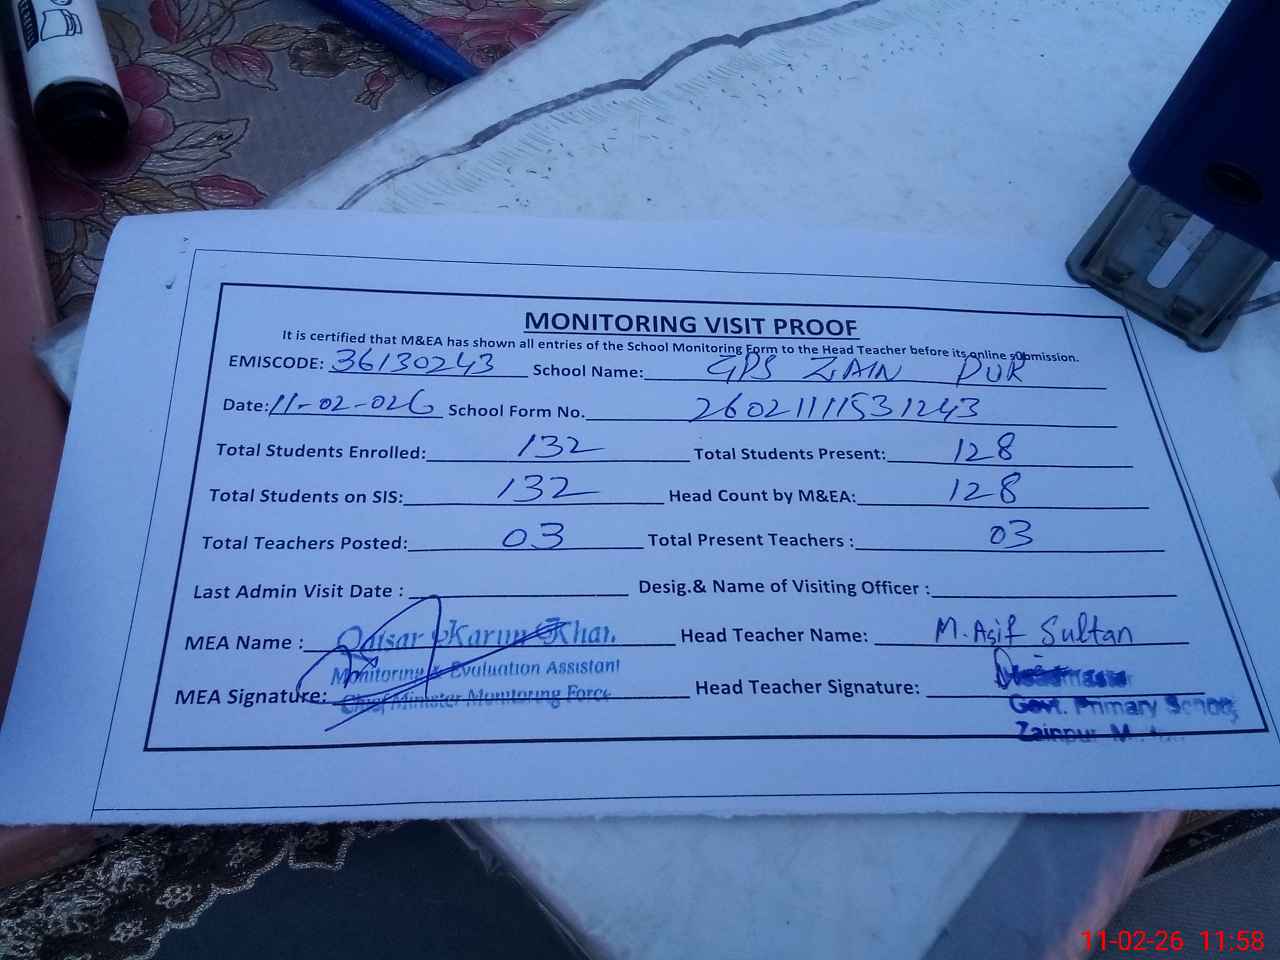 MONITORING VISIT PROOF
It is certified that M&EA has shown all entries of the School Monitoring Form to the Head Teacher before its online submission.
EMISCODE: 36130243 School Name: GPS ZAIN PUR
Date: 11-02-026 School Form No. 260211111531243
Total Students Enrolled: 132 Total Students Present: 128
Total Students on SIS: 132 Head Count by M&EA: 128
Total Teachers Posted: 03 Total Present Teachers : 03
Last Admin Visit Date : Desig.& Name of Visiting Officer :
MEA Name : Qaisar Karim Khan Head Teacher Name: M. Asif Sultan
Monitoring & Evaluation Assistant
MEA Signature: Chief Minister Monitoring Force Head Teacher Signature: Headmaster
Govt. Primary School
Zainpur
11-02-26 11:58